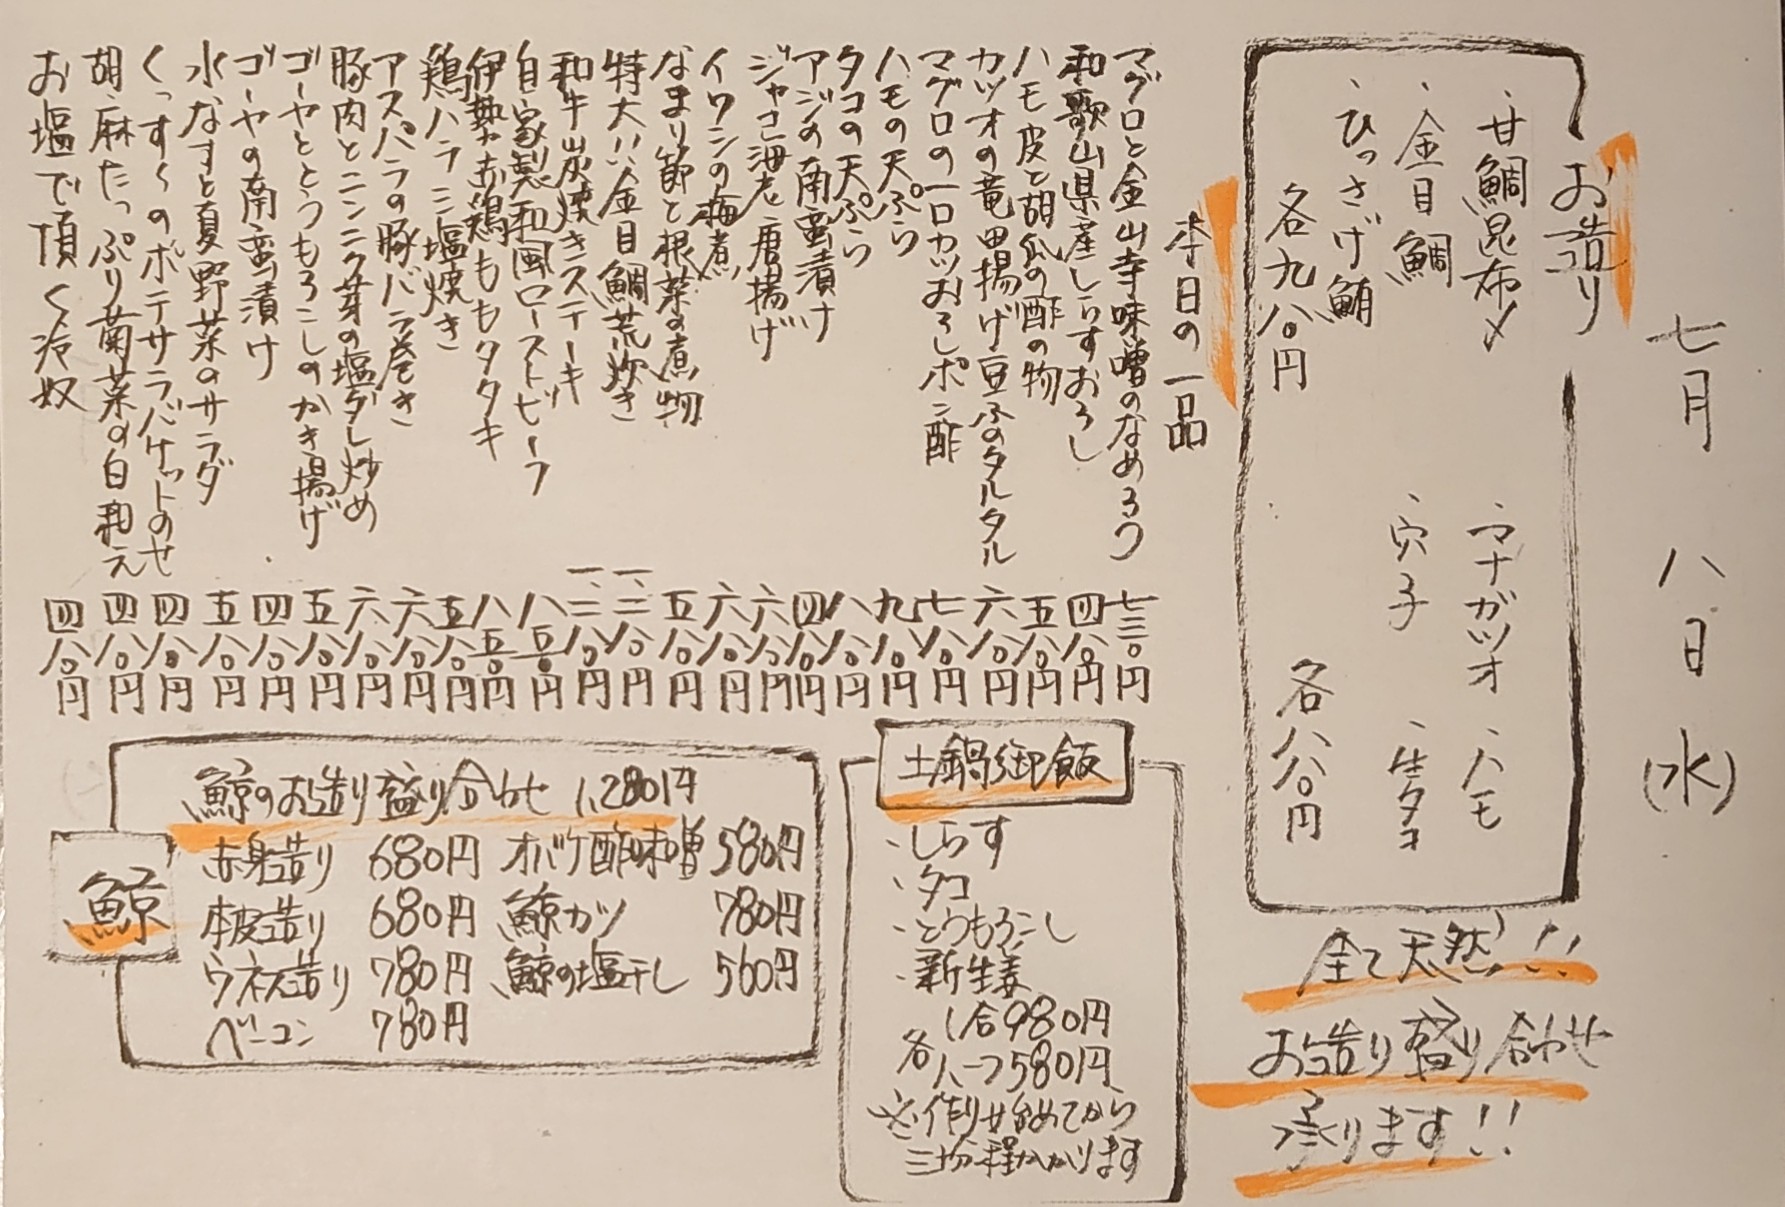 七月 八日 (水)
お造り
・甘鯛昆布〆 ・マナガツオ ・ハモ
・金目鯛 ・穴子 ・生タコ
・ひっさげ鮪
各九八〇円 各八八〇円
全て天然!!
お造り盛り合わせ
承ります!!
本日の一品
マグロと金山寺味噌のなめろう 七三〇円
和歌山県産しらすおろし 四八〇円
ハモ皮と胡瓜の酢の物 五八〇円
カツオの竜田揚げ豆ふのタルタル 六八〇円
マグロの一口カツおろしポン酢 七八〇円
ハモの天ぷら 九八〇円
タコの天ぷら 八八〇円
アジの南蛮漬け 四八〇円
ジャコ海老唐揚げ 六八〇円
イワシの梅煮 六八〇円
なまり節と根菜の煮物 五八〇円
特大!!金目鯛荒炊き 一、二八〇円
和牛炭焼きステーキ 一、二八〇円
自家製和風ローストビーフ 八五〇円
伊勢赤鶏ももタタキ 八五〇円
鶏ハラミ塩焼き 五八〇円
アスパラの豚バラ巻き 六八〇円
豚肉とニンニク芽の塩ダレ炒め 六八〇円
ゴーヤととうもろこしのかき揚げ 五八〇円
ゴーヤの南蛮漬け 四八〇円
水なすと夏野菜のサラダ 五八〇円
ポテサラバケットのせ 四八〇円
胡麻たっぷり菊菜の白和え 四八〇円
お塩で頂く冷奴 四八〇円
土鍋御飯
・しらす
・タコ
・とうもろこし
・新生姜
各 1合980円
ハーフ580円
※作り始めてから
三十分程かかります
鯨
鯨のお造り盛り合わせ 1,280円
赤身造り 680円 オバケ酢味噌 580円
本皮造り 680円 鯨カツ 780円
ウネス造り 780円 鯨の塩干し 560円
ベーコン 780円